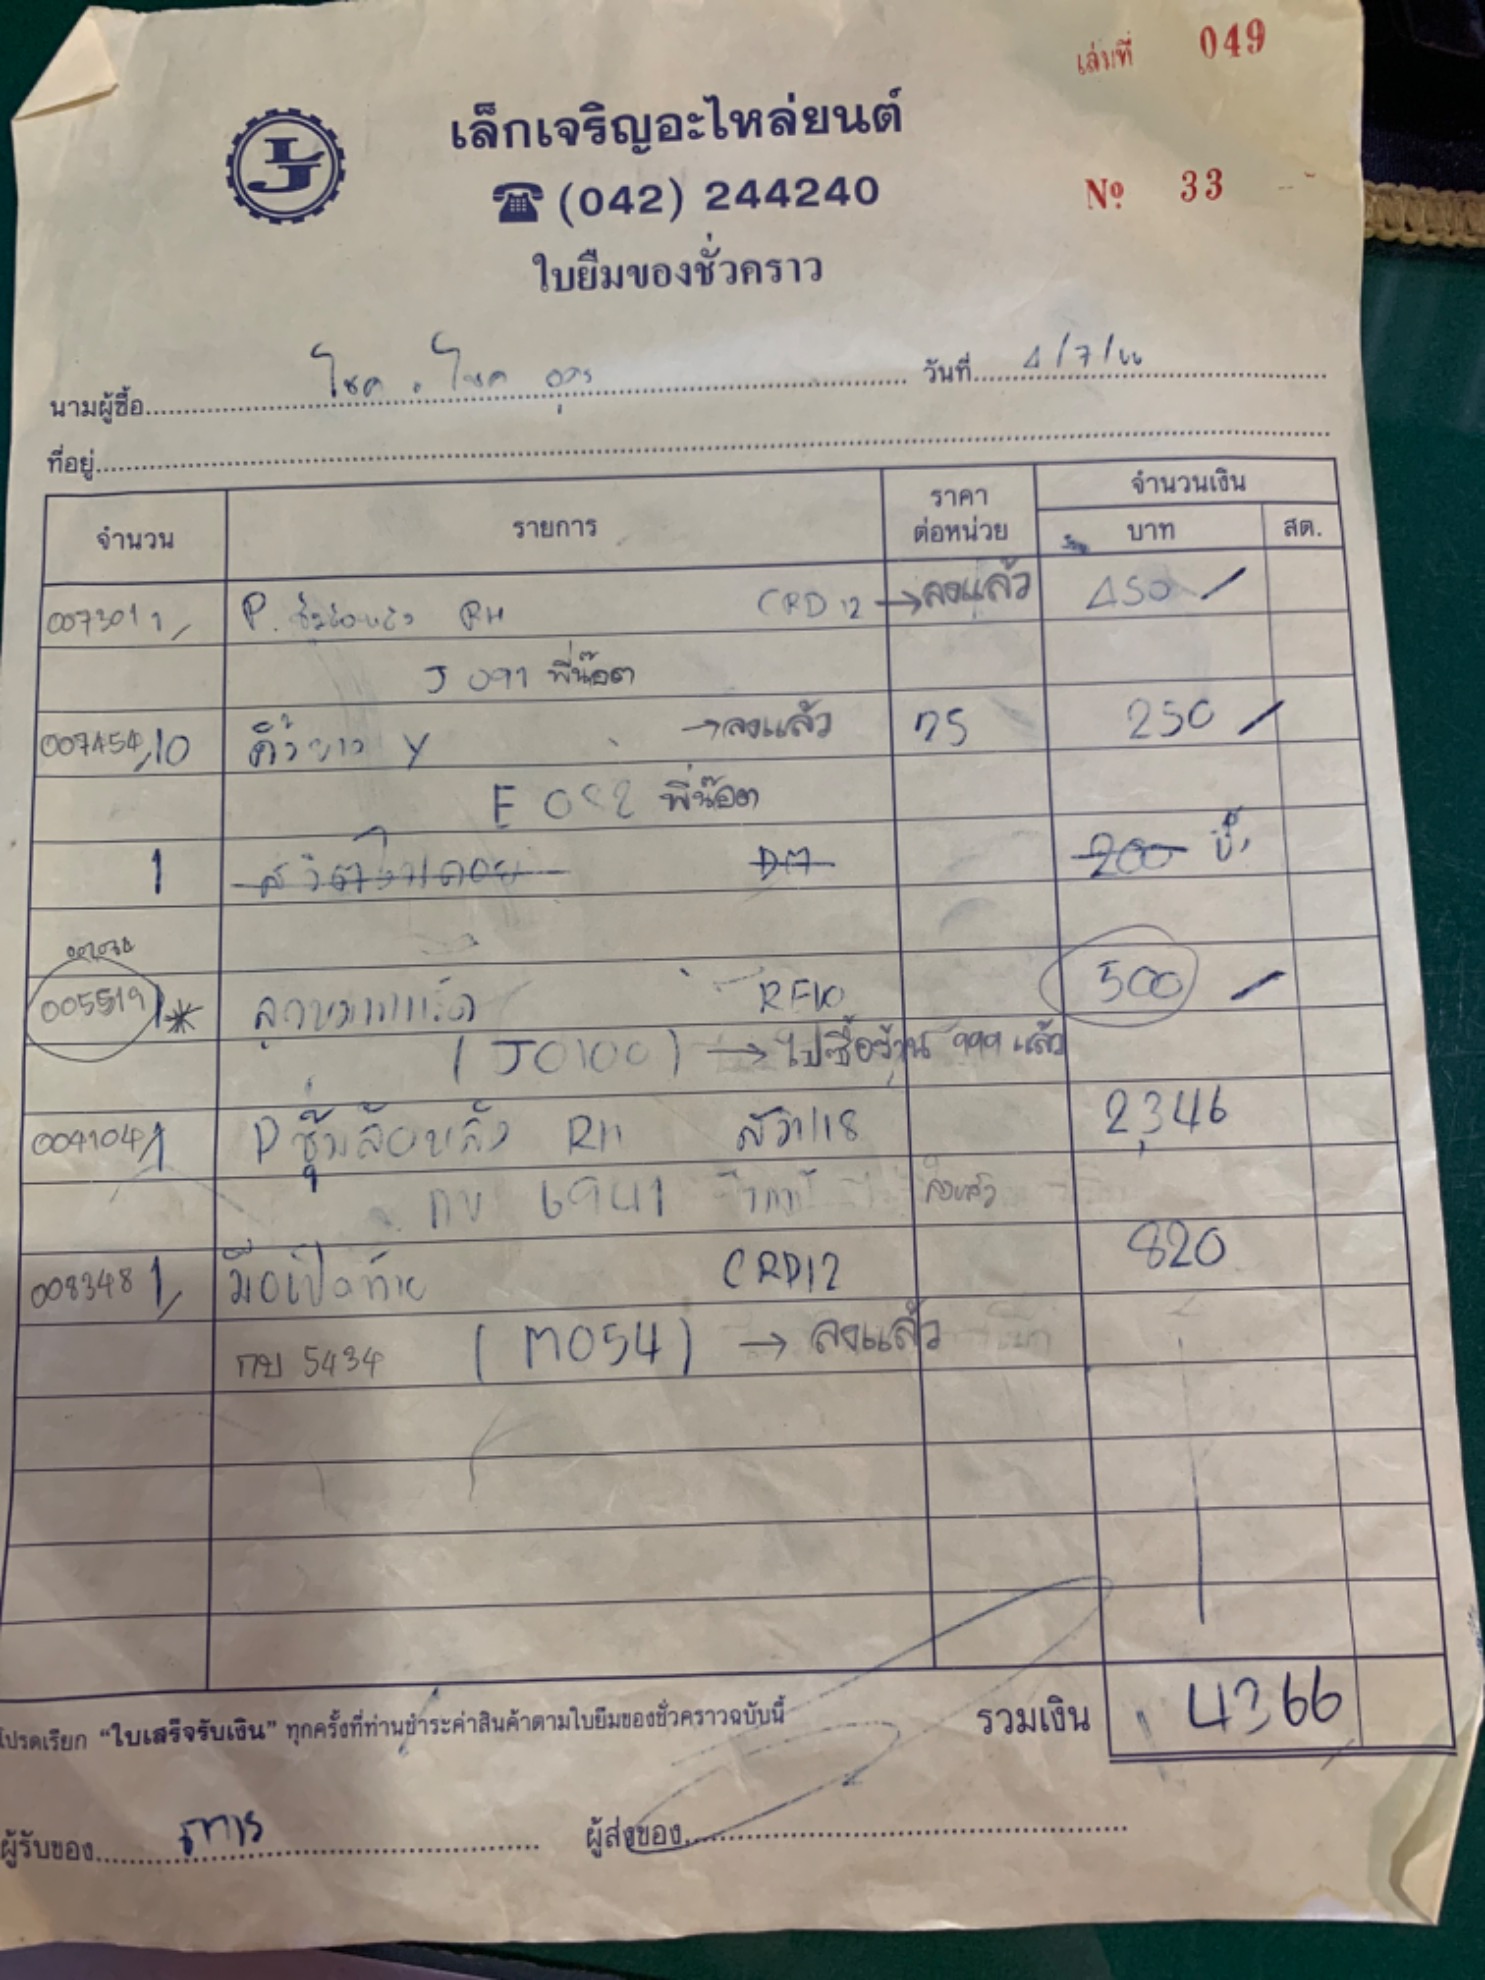 เล่มที่ 049
เล็กเจริญอะไหล่ยนต์
LJ
☎ (042) 244240
Nº 33
ใบยืมของชั่วคราว
นามผู้ซื้อ โชค . โชค อุดร วันที่ 4/7/66
ที่อยู่
จำนวน รายการ ราคาต่อหน่วย จำนวนเงิน
บาท สต.
007301 1/ P. ซุ้มล้อหลัง RH CRD 12 → ลงแล้ว 450 /
J 091 พี่น๊อต
007454 10 คิ้วยาว Y → ลงแล้ว 25 250 /
E 082 พี่น๊อต
1 DM 200
005519 1* RF10 500 /
(J0100) → ไปซื้อร้าน 999 แล้ว
009104 1 P ซุ้มล้อหลัง RH 2,346
กบ 6941 ลงแล้ว
008348 1/ มือเปิดท้าย CRD12 820
กบ 5434 (M054) → ลงแล้ว
โปรดเรียก "ใบเสร็จรับเงิน" ทุกครั้งที่ท่านชำระค่าสินค้าตามใบยืมของชั่วคราวฉบับนี้ รวมเงิน 4366
ผู้รับของ ผู้ส่งของ